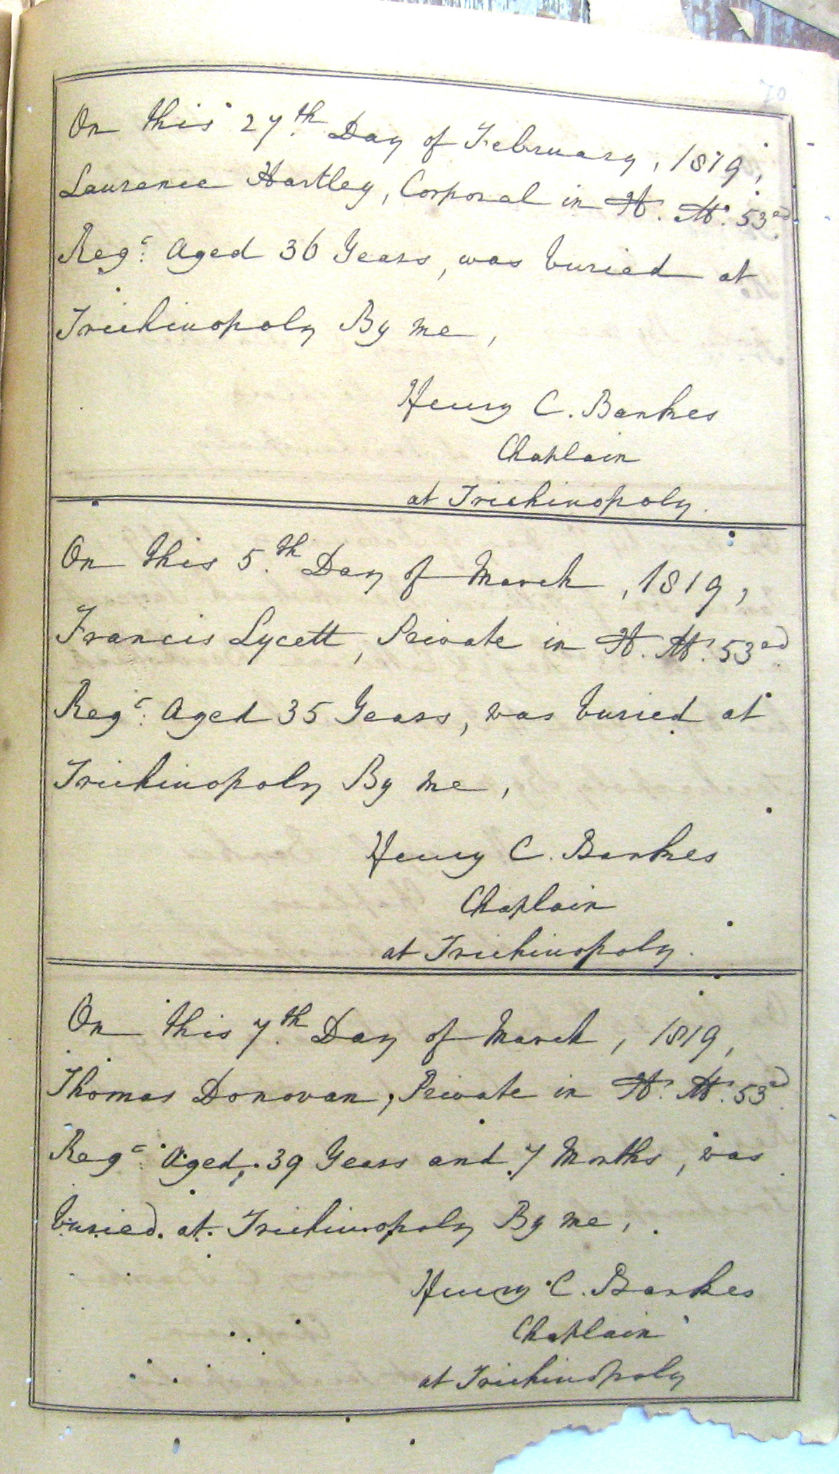 70
On this 27th Day of February, 1819,
Laurence Hartley, Corporal in H. M. 53rd
Regt. Aged 36 Years, was buried at
Trichinopoly By me,
Henry C. Bankes
Chaplain
at Trichinopoly.
On this 5th Day of March, 1819,
Francis Lycett, Private in H. M. 53rd
Regt. Aged 35 Years, was buried at
Trichinopoly By me,
Henry C. Bankes
Chaplain
at Trichinopoly.
On this 7th Day of March, 1819,
Thomas Donovan, Private in H. M. 53rd
Regt. Aged, 39 Years and 7 Months, was
buried at Trichinopoly By me,
Henry C. Bankes
Chaplain
at Trichinopoly